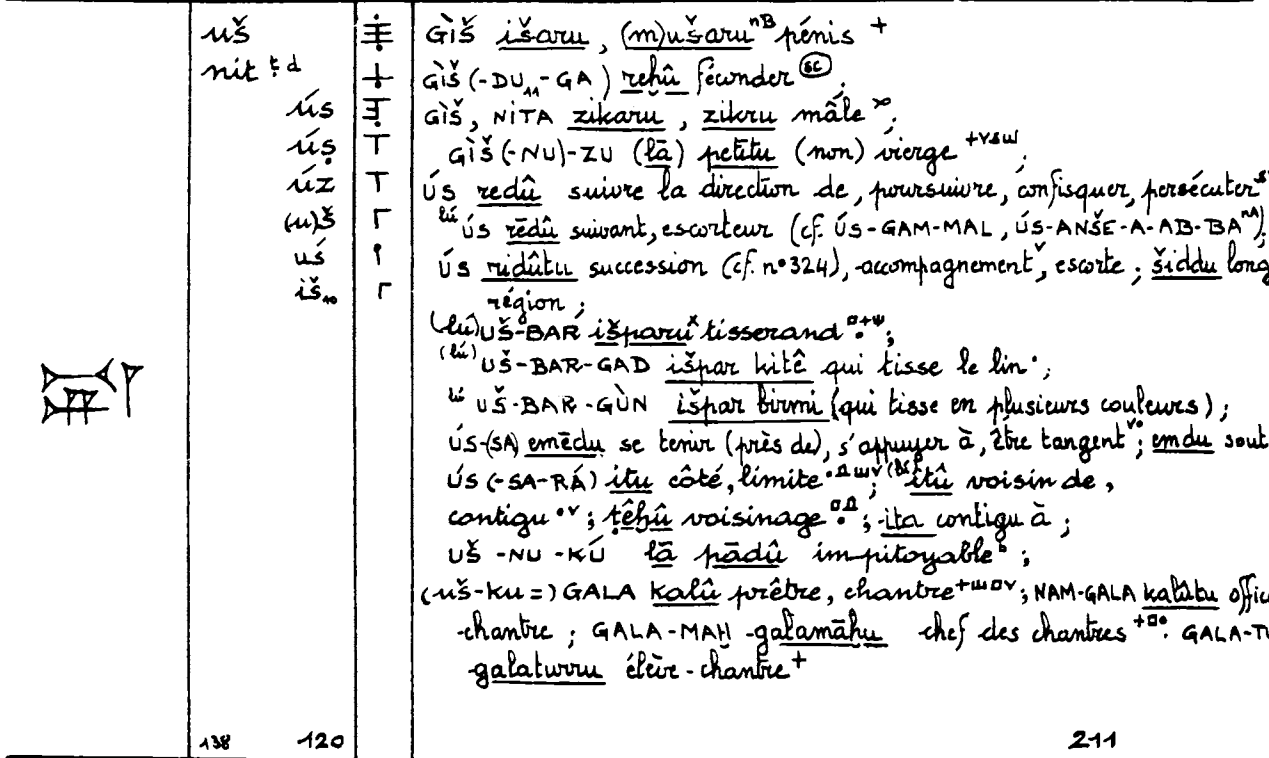 uš GÌŠ išaru, (m)ušaru nB pénis +
nit ṭ d GÌŠ (-DU₁₁-GA) reḫû féconder SC ;
ús GÌŠ, NÍTA zikaru, zikru mâle ;
úṣ GÌŠ (-NU)-ZU (lā) petītu (non) vierge ;
úz ÚS redû suivre la direction de, poursuivre, confisquer, persécuter
(u)š lú ÚS rēdû suivant, escorteur (cf. ÚS-GAM-MAL, ÚS-ANŠE-A-AB-BA nA) ;
uś ÚS ridûtu succession (cf. n°324), accompagnement v, escorte ; šiddu long
iš₁₀ région ;
(lú) UŠ-BAR išparu x tisserand ;
(lú) UŠ-BAR-GAD išpar kitê qui tisse le lin • ;
lú UŠ-BAR-GÙN išpar birmi (qui tisse en plusieurs couleurs) ;
ÚS-(SA) emēdu se tenir (près de), s'appuyer à, être tangent ; emdu sout
ÚS (-SA-RÁ) itu côté, limite ; itû voisin de,
contigu •v ; ṭêḫû voisinage ; ita contigu à ;
UŠ-NU-KÚ lā pādû impitoyable b ;
(uš-ku =) GALA kalû prêtre, chantre ; NAM-GALA kalûtu offic
chantre ; GALA-MAḪ galamāḫu chef des chantres . GALA-TU
galaturru élève-chantre +
138 120 211